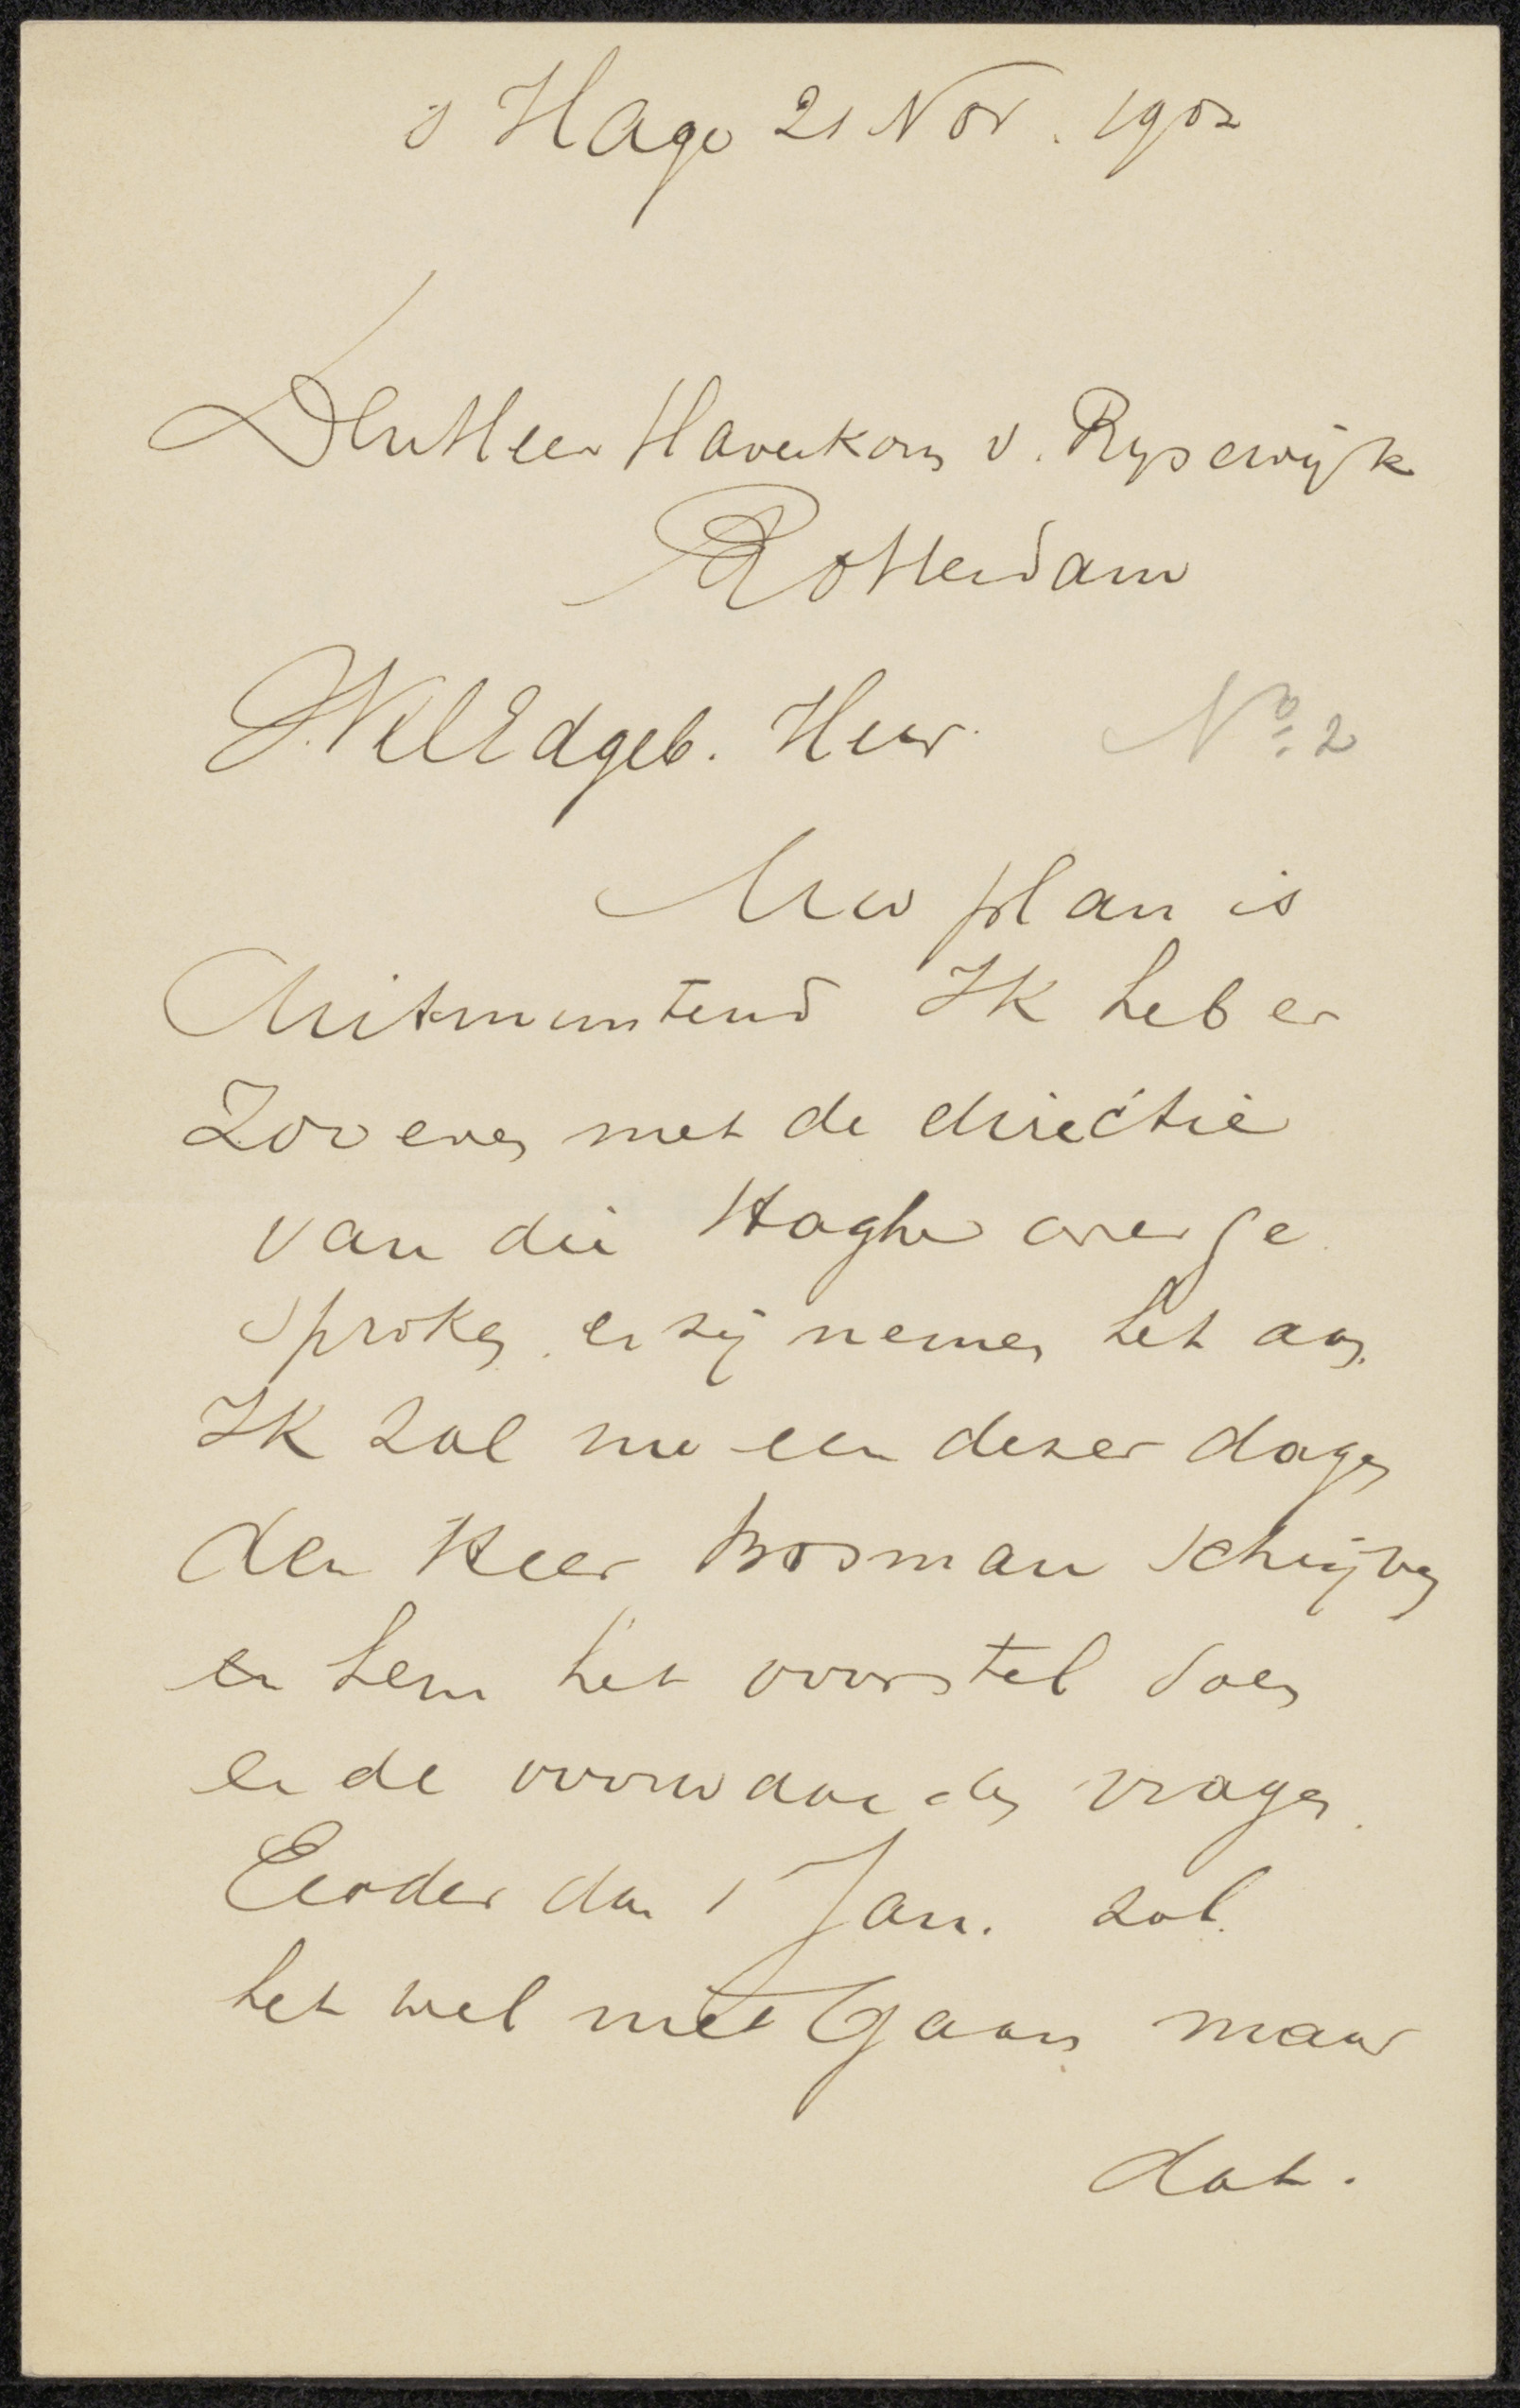 s Hage 21 Nov. 1902
Den Heer Haverkorn v. Rysewijk
Rotterdam
WelEdgeb. Heer
No. 2
Uw plan is
Uitmuntend Ik heb er
Zoo even met de directie
van die Haghe over ge
sproken en zij nemen het aan.
Ik zal nu een dezer dagen
den Heer Bosman schrijven
en hem het voorstel doen
en de voorwaarden vragen.
Eerder dan 1 Jan. zal
het wel niet Gaan maar
dat.